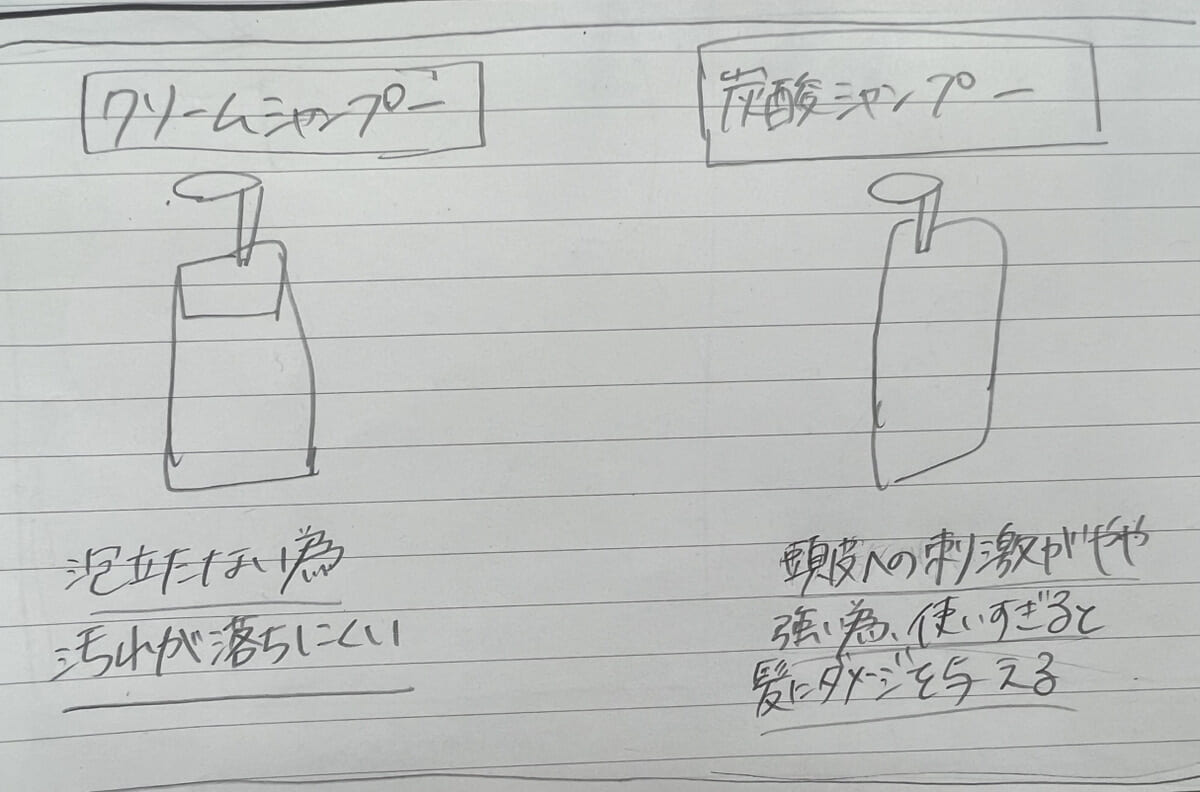 クリームシャンプー
泡立たない為
汚れが落ちにくい
炭酸シャンプー
頭皮への刺激がやや
強い為、使いすぎると
髪にダメージを与える